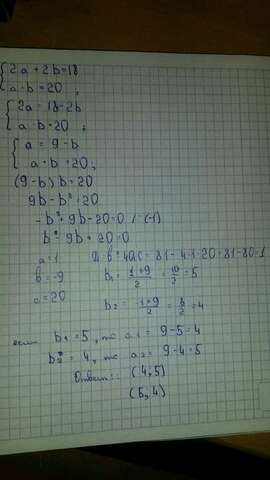 {2a + 2b = 18
a·b = 20 ;
{2a = 18 - 2b
a·b = 20 ;
{a = 9 - b
a·b = 20;
(9-b) b = 20
9b - b² = 20
-b² + 9b - 20 = 0 / · (-1)
b² - 9b + 20 = 0
a = 1 D = b² - 4ac = 81 - 4·1·20 = 81 - 80 = 1
b = -9 b₁ = (1+9)/2 = 10/2 = 5
c = 20
b₂ = (-1+9)/2 = 8/2 = 4
если b₁ = 5, то a₁ = 9-5 = 4
b₂ = 4, то a₂ = 9-4 = 5
Ответ: (4;5)
(5;4)